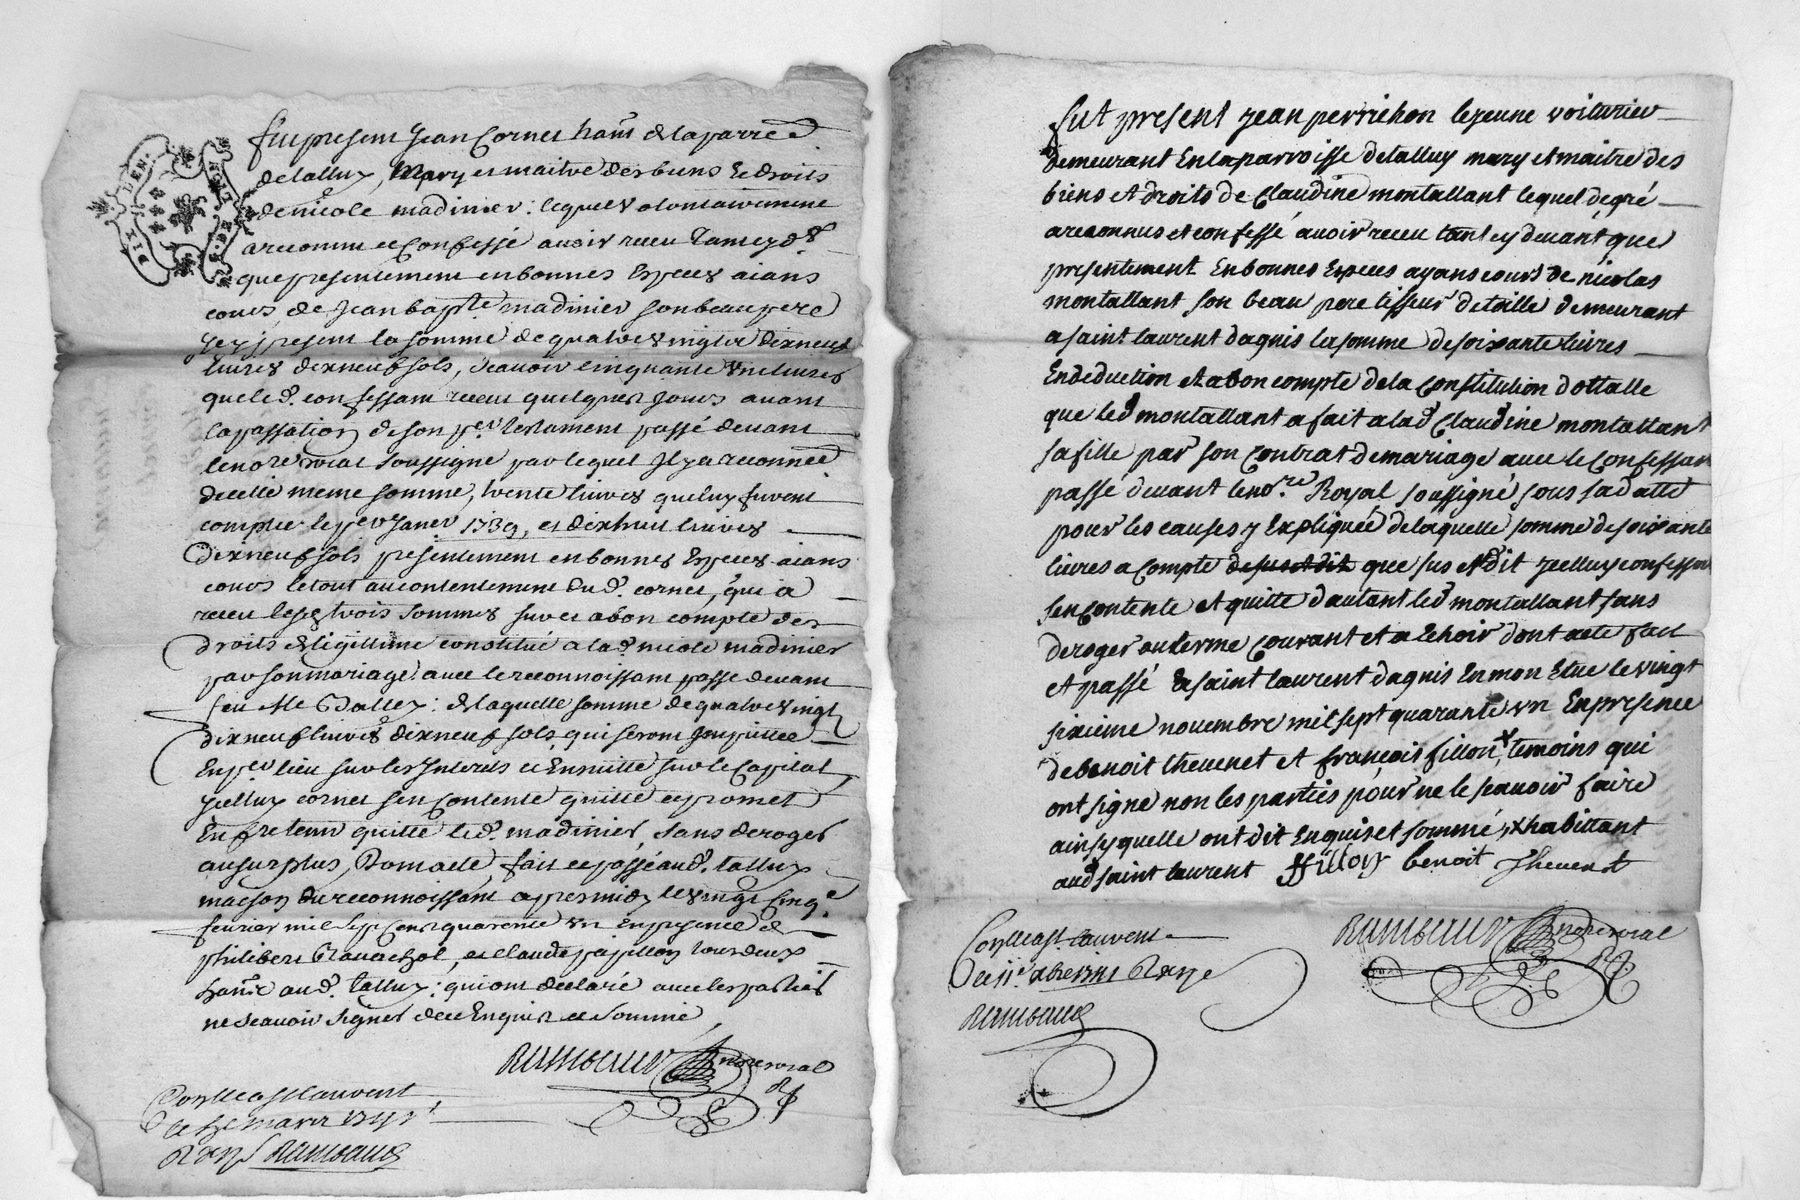 DIX DEN.
G. DE LYON
fut present Jean Cornet ha͞nt de la parr͞e
de talluy, Mary et maitre des biens et droits
de nicole madinier: lequel volontairement
a reconnu et confessé avoir receu tant cyd͞t
que presentement en bonnes especes aians
cours, de Jean bapte madinier son beau pere
icy present la somme de quatre vingts dixneuf
livres dixneuf sols, scavoir cinquante une livres
que led. confessant receut quelques jours avant
la passation de son per testament passé devant
le no͞re roial soussigné par lequel Il y a reconnu
decelle meme somme, trente livres que luy furent
comptee le per Janer 1739, et dixhuit livres
dixneuf sols presentement en bonnes especes aians
cours le tout au contentement dud. cornet, qui a
receu lesd. trois sommes sur et a bon compte des
droits de légitime constitué a lad. nicole madinier
par son mariage avec le reconnoissant passé devant
feu Me Dalley: de laquelle somme de quatre vingt
dixneuf livres dixneuf sols, qui seront Imputtee
En per lieu sur les Interets et Ensuitte sur le Capital
Jcelluy cornet s'en Contente quitte et promet
En fre tenir quitte led. madinier, sans deroger
au surplus, Dont acte, fait et passé aud. talluy
maison du reconnoissant apres midy le vingt cinqe
fevrier mil sept Cent quarente un En presence de
philibert Ravachol, et Claude papillon tous deux
ha͞nts aud. talluy: qui ont declaré avec les parties
ne scavoir signer de ce Enquis et Sommé,
Rambaud nore roial
Conlle a st laurent
le 5e mars 1741
R xs Rambaud
fut present jean perrichon lejeune voiturier
demeurant En la parroisse de talluy mary et maitre des
biens et droits de Claudine montallant lequel de gré
a reconnus et confessé avoir receu tant cy devant que
presentement En bonnes Especes ayans cours de nicolas
montallant son beau pere tisseur de toille demeurant
a saint laurent dagnis la somme de soixante livres
En deduction et a bon compte de la Constitution dottalle
que led montallant a fait a lad Claudine montallant
sa fille par son contrat de mariage avec le Confessant
passé devant le no.re Royal soussigné sous sa datte
pour les causes y Expliquée de laquelle somme de soixante
livres a compte de sus et dit que sus Est dit ycelluy confessant
sen contente et quitte d'autant led montallant sans
deroger au terme courant et a Echoir dont acte fait
et passé a saint laurent dagnis En mon Etue le vingt
sixieme novembre mil sept quarante un En presence
de benoit thevenet et françois fillon x temoins qui
ont signe non les parties pour ne le scavoir faire
ainsy quelle ont dit Enquis et sommé, x habittant
aud saint laurent ffillon benoit Thevenet
Conlle a st laurent
le 11e xbre 1741 R xs
Rambaud
Rambaud nore roial